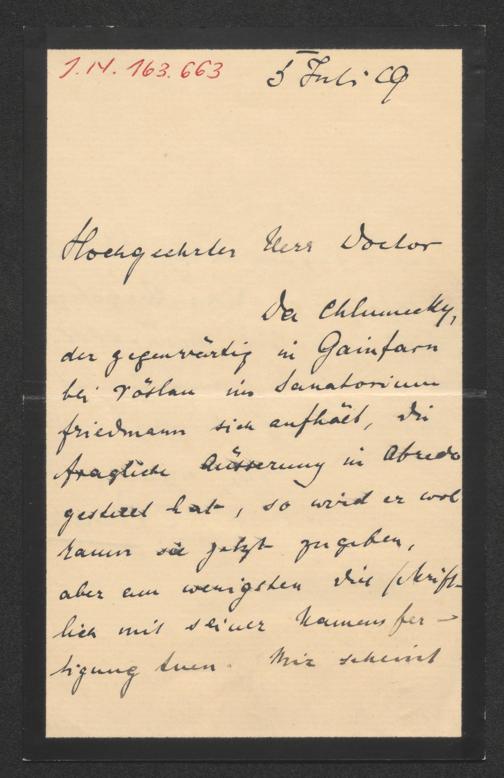 J.N. 163.663
5 Juli 09
Hochgeehrter Herr Doctor
Da Chlumecky,
der gegenwärtig in Gainfarn
bei Vöslau im Sanatorium
Friedmann sich aufhält, die
fragliche Äusserung in Abrede
gestellt hat, so wird er wol
kaum sie jetzt zugeben,
aber am wenigsten dies schrift-
lich mit seiner Namensfer-
tigung tuen. Mir scheint